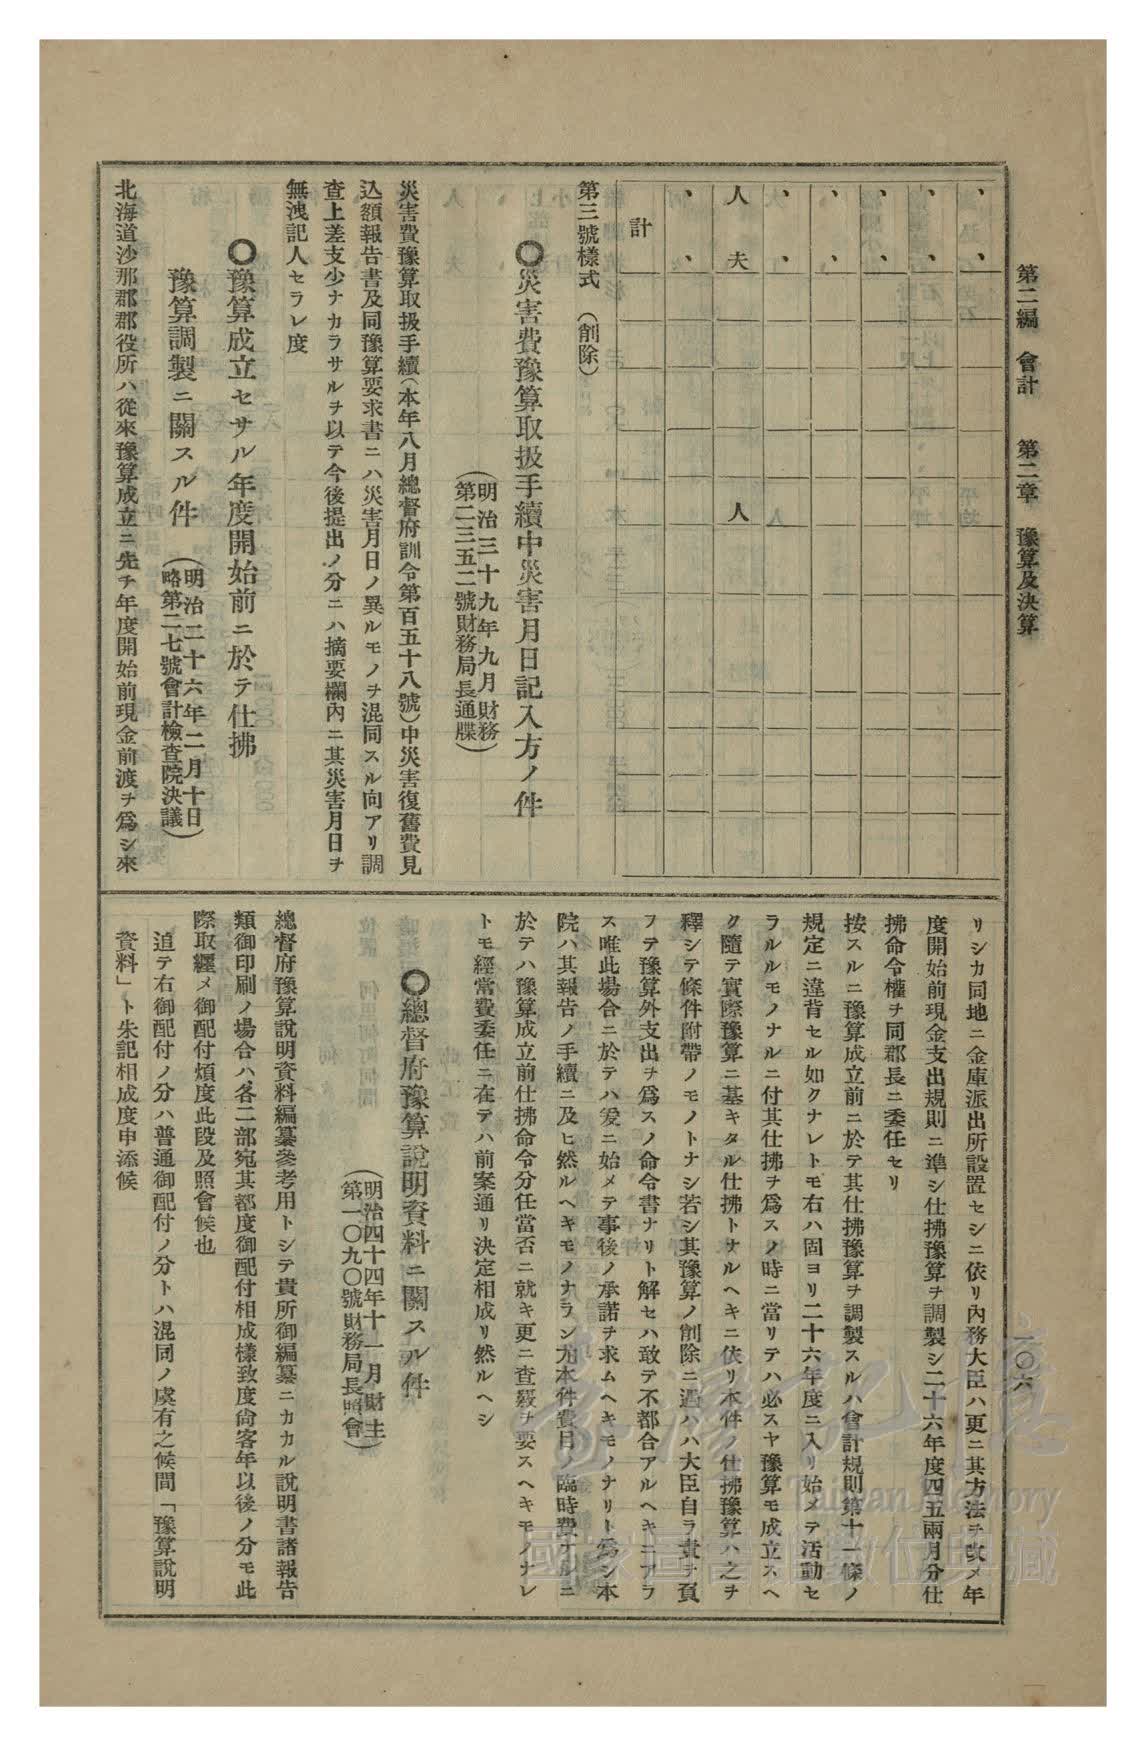 第二編　會計　　第二章　豫算及決算
一〇六
、　、
、　、
、　、
、　、
、　、
人　夫　　人
、　、
計
第三號樣式　（削除）
◯災害費豫算取扱手續中災害月日記入方ノ件
（明治三十九年九月財務
第二三五二號財務局長通牒）
災害費豫算取扱手續（本年八月總督府訓令第百五十八號）中災害復舊費見
込額報告書及同豫算要求書ニハ災害月日ノ異ルモノヲ混同スル向アリ調
查上差支少ナカラサルヲ以テ今後提出ノ分ニハ摘要欄內ニ其災害月日ヲ
無洩記人セラレ度
◯豫算成立セサル年度開始前ニ於テ仕拂
豫算調製ニ關スル件
（明治二十六年二月十日
略第二七號會計檢査院決議）
北海道沙那郡郡役所ハ從來豫算成立ニ先チ年度開始前現金前渡ヲ爲シ來
リシカ同地ニ金庫派出所設置セシニ依リ內務大臣ハ更ニ其方法ヲ改メ年
度開始前現金支出規則ニ準シ仕拂豫算ヲ調製シ二十六年度四五兩月分仕
拂命令權ヲ同郡長ニ委任セリ
按スルニ豫算成立前ニ於テ其仕拂豫算ヲ調製スルハ會計規則第十一條ノ
規定ニ違背セル如クナレトモ右ハ固ヨリ二十六年度ニ入リ始メテ活動セ
ラルルモノナルニ付其仕拂ヲ爲スノ時ニ當リテハ必スヤ豫算モ成立スヘ
ク隨テ實際豫算ニ基キタル仕拂トナルヘキニ依リ本件ノ仕拂豫算ハ之ヲ
釋シテ條件附帶ノモノトナシ若シ其豫算ノ削除ニ遇ハハ大臣自ラ責ヲ負
フテ豫算外支出ヲ爲スノ命令書ナリト解セハ敢テ不都合アルヘキニアラ
ス唯此場合ニ於テハ爰ニ始メテ事後ノ承諾ヲ求ムヘキモノナリト爲シ本
院ハ其報告ノ手續ニ及ヒ然ルヘキモノナラン尤本件費目ノ臨時費ナルニ
於テハ豫算成立前仕拂命令分任當否ニ就キ更ニ查覈ヲ要スヘキモノナレ
トモ經常費委任ニ在テハ前案通リ決定相成リ然ルヘシ
◯總督府豫算說明資料ニ關スル件
（明治四十四年十一月財主
第一〇九〇號財務局長照會）
總督府豫算說明資料編纂參考用トシテ貴所御編纂ニカカル說明書諸報告
類御印刷ノ場合ハ各二部宛其都度御配付相成樣致度尙客年以後ノ分モ此
際取纒メ御配付煩度此段及照會候也
追テ右御配付ノ分ハ普通御配付ノ分トハ混同ノ虞有之候間「豫算說明
資料」ト朱記相成度申添候
臺灣記憶
Taiwan Memory
國家圖書館數位典藏